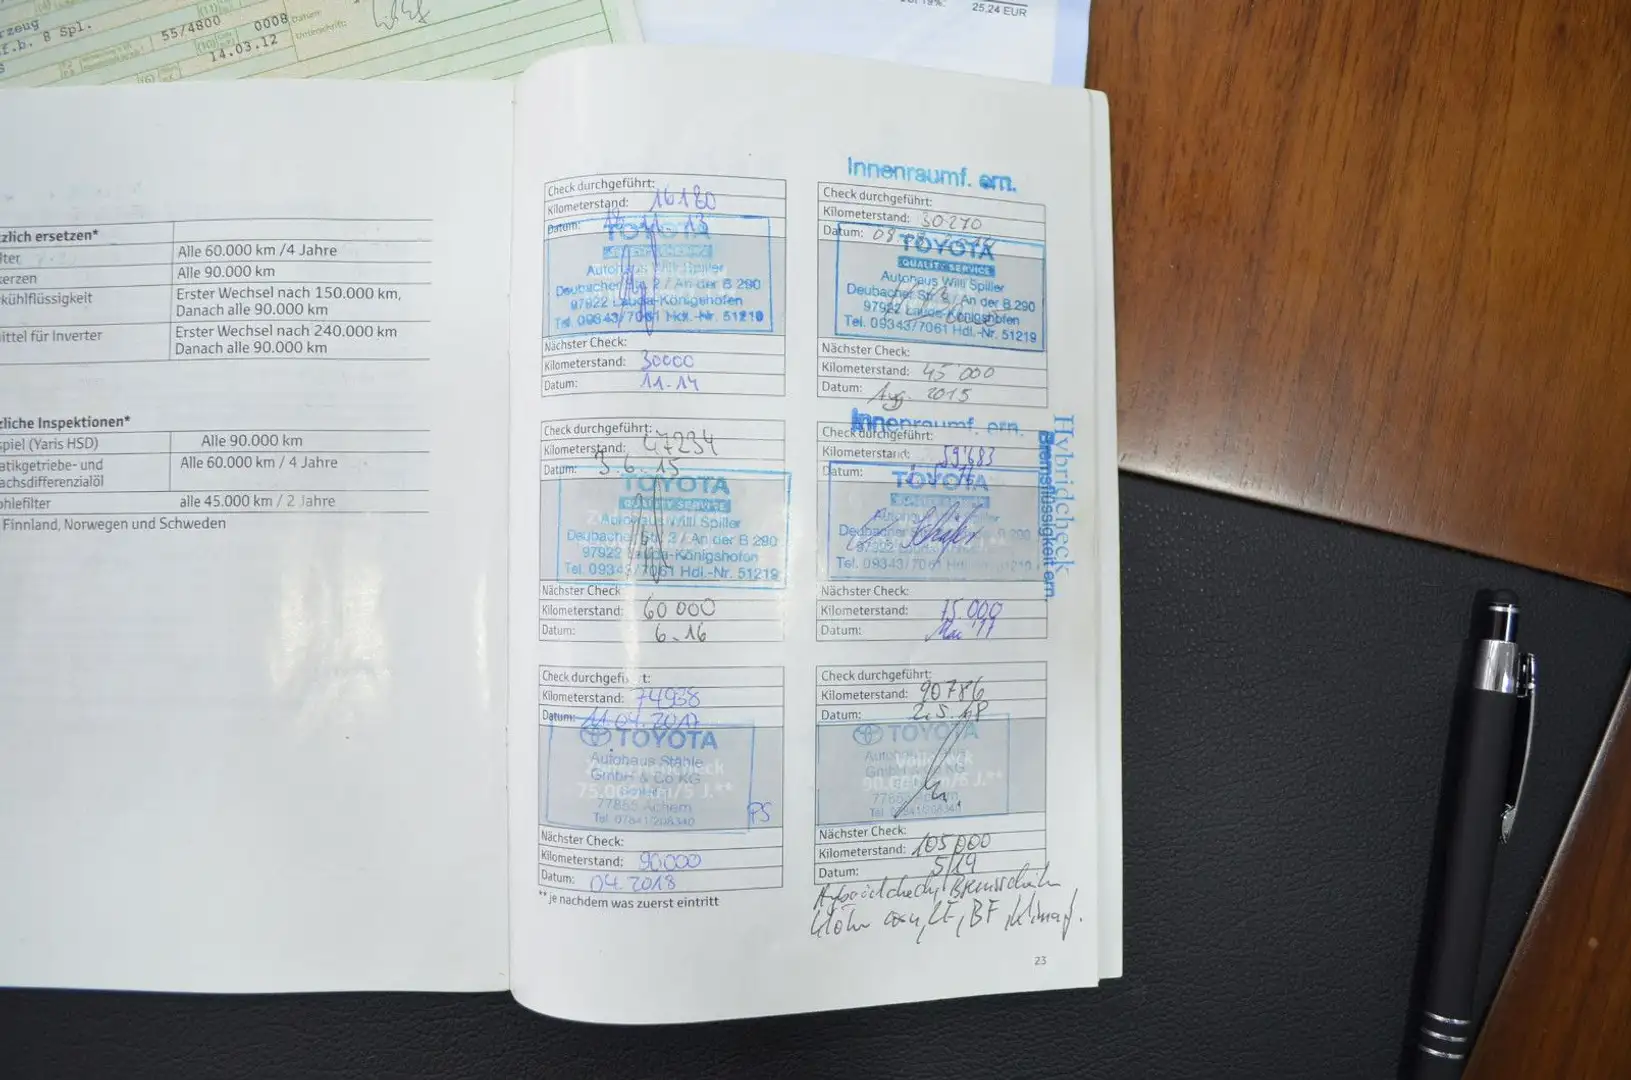 rzeug
f.b. 8 Spl.
55/4800
0008
14.03.12
Datum:
Unterschrift:
25.24 EUR
zlich ersetzen*
lter
Alle 60.000 km /4 Jahre
erzen
Alle 90.000 km
kühlflüssigkeit
Erster Wechsel nach 150.000 km,
Danach alle 90.000 km
ittel für Inverter
Erster Wechsel nach 240.000 km
Danach alle 90.000 km
zliche Inspektionen*
spiel (Yaris HSD)
Alle 90.000 km
atikgetriebe- und
achsdifferenzialöl
Alle 60.000 km / 4 Jahre
ohlefilter
alle 45.000 km / 2 Jahre
Finnland, Norwegen und Schweden
Check durchgeführt:
Kilometerstand: 16180
Datum:
TOYOTA
Autohaus Willi Spiller
Deubacher Str. 2 / An der B 290
97922 Lauda-Königshofen
Tel. 09343/7061 Hdl.-Nr. 51219
Nächster Check:
Kilometerstand: 30000
Datum: 11.14
Innenraumf. ern.
Check durchgeführt:
Kilometerstand: 30270
Datum:
TOYOTA
QUALITY SERVICE
Autohaus Willi Spiller
Deubacher Str. 2 / An der B 290
97922 Lauda-Königshofen
Tel. 09343/7061 Hdl.-Nr. 51219
Nächster Check:
Kilometerstand: 45 000
Datum: Aug. 2015
Check durchgeführt:
Kilometerstand: 47234
Datum: 3.6.15
TOYOTA
QUALITY SERVICE
Autohaus Willi Spiller
Deubacher Str. 2 / An der B 290
97922 Lauda-Königshofen
Tel. 09343/7061 Hdl.-Nr. 51219
Nächster Check:
Kilometerstand: 60 000
Datum: 6.16
Innenraumf. ern.
Check durchgeführt:
Kilometerstand: 59683
Datum:
TOYOTA
Autohaus Willi Spiller
Deubacher Str. 2 / An der B 290
97922 Lauda-Königshofen
Tel. 09343/7061 Hdl.-Nr. 51219
Nächster Check:
Kilometerstand: 75.000
Datum: Mai '17
Hybridcheck
Bremsflüssigkeit ern
Check durchgeführt:
Kilometerstand: 74938
Datum: 11.04.2017
TOYOTA
Autohaus Stähle
GmbH & Co KG
75.000 km/5 J.**
77855 Achern
Tel. 07841/208340
PS
Nächster Check:
Kilometerstand: 90000
Datum: 04.2018
** je nachdem was zuerst eintritt
Check durchgeführt:
Kilometerstand: 90786
Datum: 2.5.18
TOYOTA
GmbH & Co KG
90.000 km/6 J.**
Tel. 07841/208340
Nächster Check:
Kilometerstand: 105 000
Datum: 5/19
23